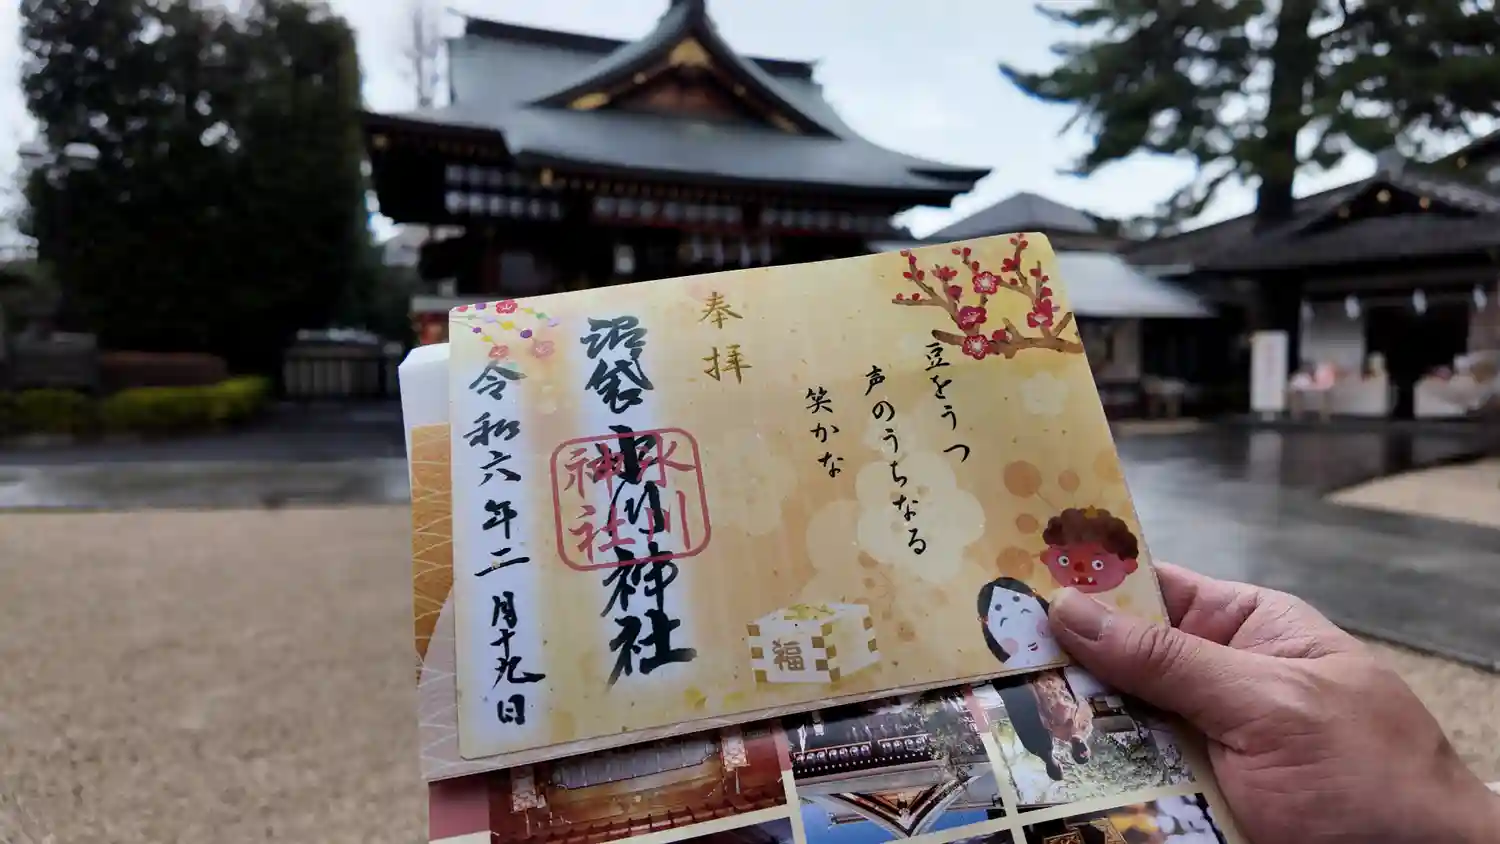 豆をうつ
声のうちなる
笑かな
奉拝
沼袋氷川神社
氷川
神社
令和六年二月十九日
福